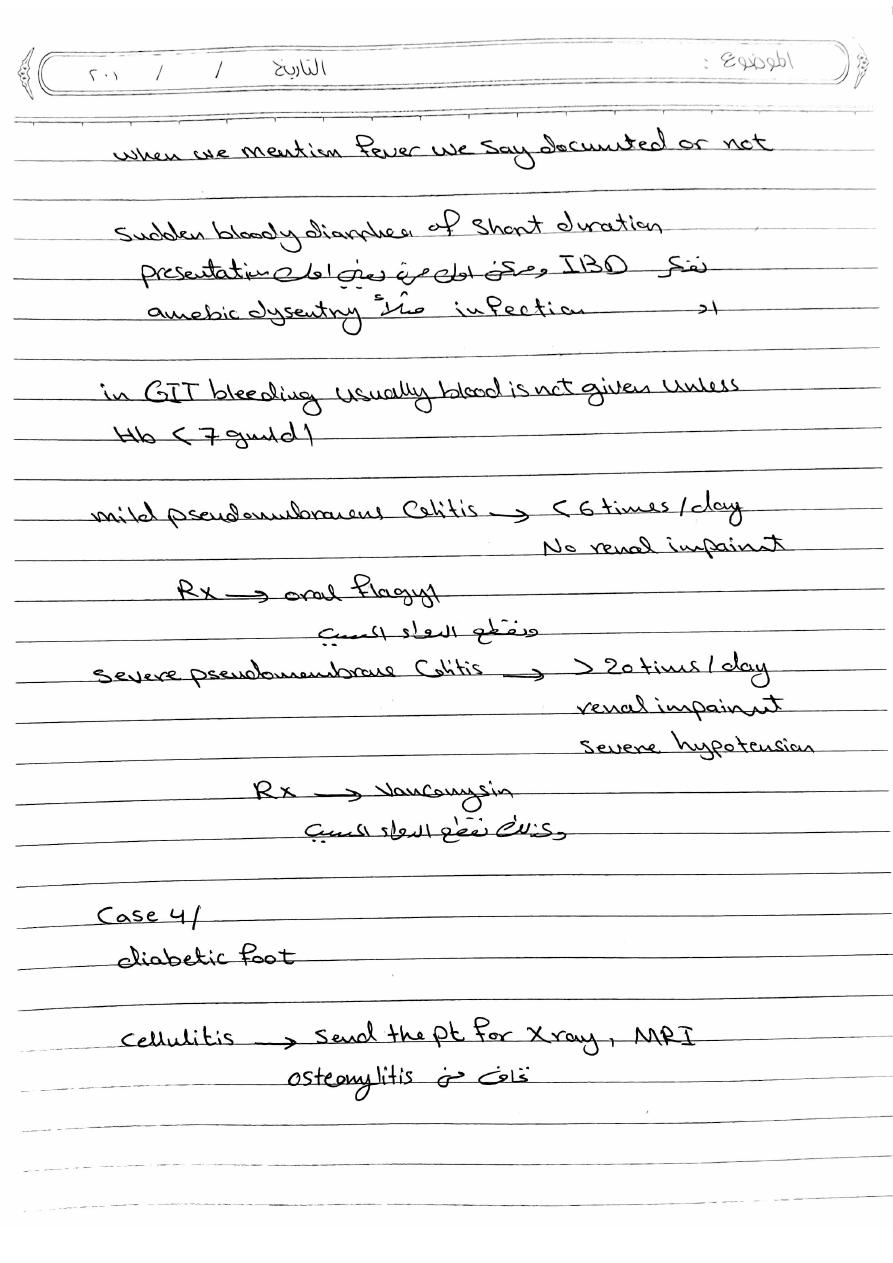 الموضوع : التاريخ / / ٢٠١
when we mention fever we say documented or not
sudden bloody diarrhea of short duration
نفكر IBD وممكن اول مرة يجي اول presentation
او infection مثلاً amebic dysentry
in GIT bleeding usually blood is not given unless
Hb < 7 gm/dl
mild pseudomembranous Colitis → < 6 times / day
No renal impairmnt
Rx → oral flagyl
ونقطع الدواء المسبب
severe pseudomembrane Colitis → > 20 tims / day
renal impairmnt
severe hypotension
Rx → Vancomysin
وكذلك نقطع الدواء المسبب
Case 4/
diabetic foot
Cellulitis → Send the pt for X ray, MRI
نخاف من osteomylitis